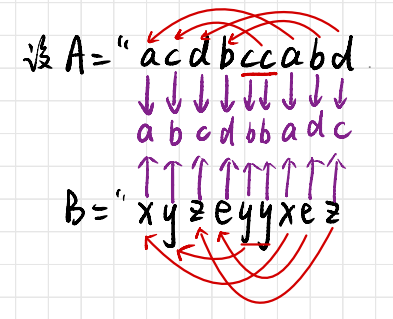 设 A = "acdbccabd
abcdbbadc
B = "xyzeyyxez